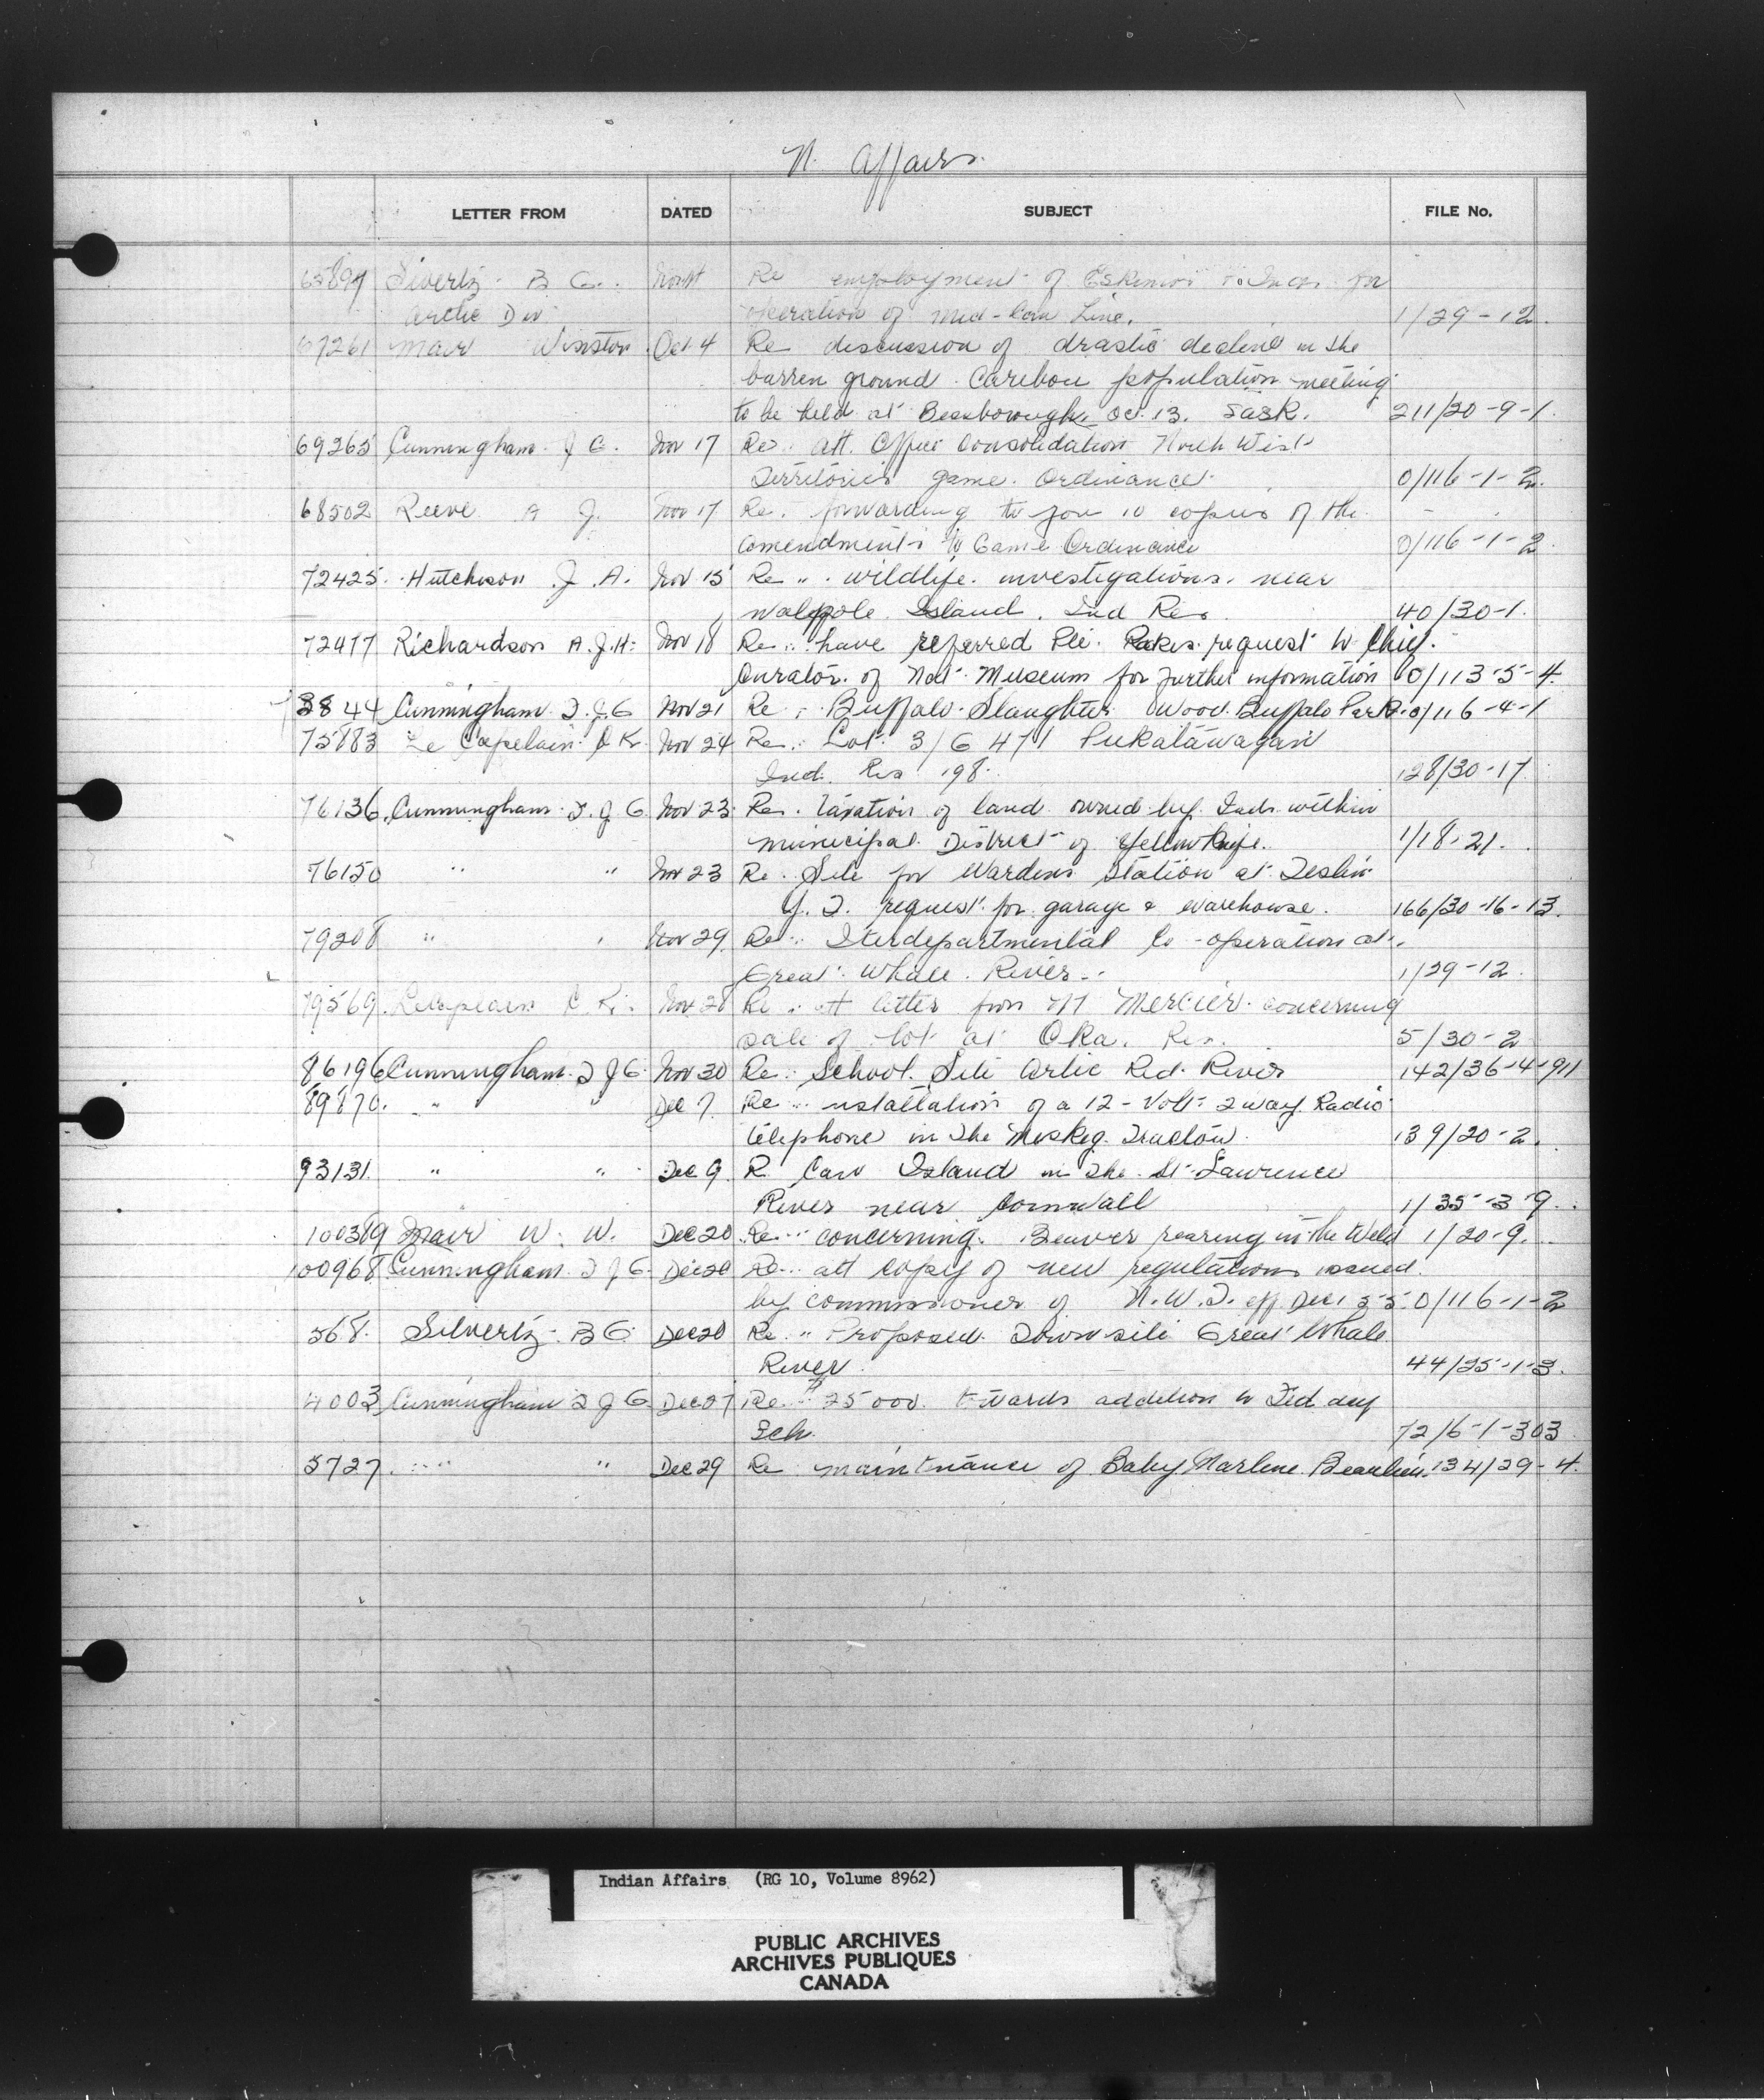 N. Affairs.
LETTER FROM DATED SUBJECT FILE No.
65894 Sivertz B G. Re employment of Eskimos for
Arctic Div operation of Mid-Can Line. 1/29-12.
67261 Mair Winston Oct 4 Re discussion of drastic decline in the
barren ground Caribou population meeting
to be held at Bessborough Oct 13. Sask. 211/20-9-1
69265 Cunningham J G. Nov 17 Re. Att. Office Consolidation North West
Territories game Ordinance. 0/116-1-2.
68502 Reeve A J. Nov 17 Re. forwarding to you 10 copies of the
amendments to Game Ordinance 0/116-1-2.
72425 Hutchison J. A. Nov 15 Re " wildlife investigations near
Walppole Island. Ind Res 40/30-1.
72477 Richardson A.J.H. Nov 18 Re " have referred request to Chief.
Curator of Nat. Museum for further information 0/113-5-4.
3844 Cunningham F.J.G Nov 21 Re. Buffalo Slaughter Wood Buffalo Park. 0/116-4-1
75883 Le Capelain C K. Nov 24 Re. Lot 3/6 471 Pukatawagan
Ind. Res 198. 128/30-17.
76136 Cunningham F.J G. Nov 23 Re. taxation of land owned by Inds within
municipal District of Yellowknife. 1/18-21.
76150 " " Nov 23 Re. Site for Wardens Station at Teslin
Y. T. request for garage & warehouse. 166/30-16-13.
79208 " " Nov 29 Re " Iterdepartmental Co-operation at
Great Whale River 1/29-12.
79569 Lecaplain C K. Nov 28 Re. att letter from M Mercier concerning
sale of lot at Oka. Res. 5/30-2
86196 Cunningham F J G. Nov 30 Re. School Site Artic Red River 142/36-4-911
89870. " " Dec 7. Re " nstallation of a 12-Volt 2 way Radio
telephone in the Muskeg Tractor. 139/20-2.
93131. " " Dec 9. R. Island in the St. Lawrence
River near Cornwall 1/35-3-9.
100389 Mair W. W. Dec 20 Re " concerning Beaver rearing in the Weld 1/20-9.
100968 Cunningham F J G. Dec 20 Re. att copy of new regulations issued
by commissioner of N.W.T. eff Dec 1 55. 0/116-1-2
568. Silvertz B G Dec 20 Re. " Proposed Town site Great Whale
River. 44/25-1-3.
4003 Cunningham F J G Dec 27 Re. $25000. towards addition to Fed day
Sch. 72/6-1-303
5727. " " Dec 29 Re maintnance of Baby Marlene Beaulieu. 134/29-4.
Indian Affairs (RG 10, Volume 8962)
PUBLIC ARCHIVES
ARCHIVES PUBLIQUES
CANADA